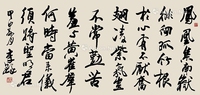 鳳凰集南嶽
徘徊孤竹根
於心有不厭奮
翅凌紫氛豈
不常勤苦
羞與黃雀羣
何時當來儀
須將聖明君